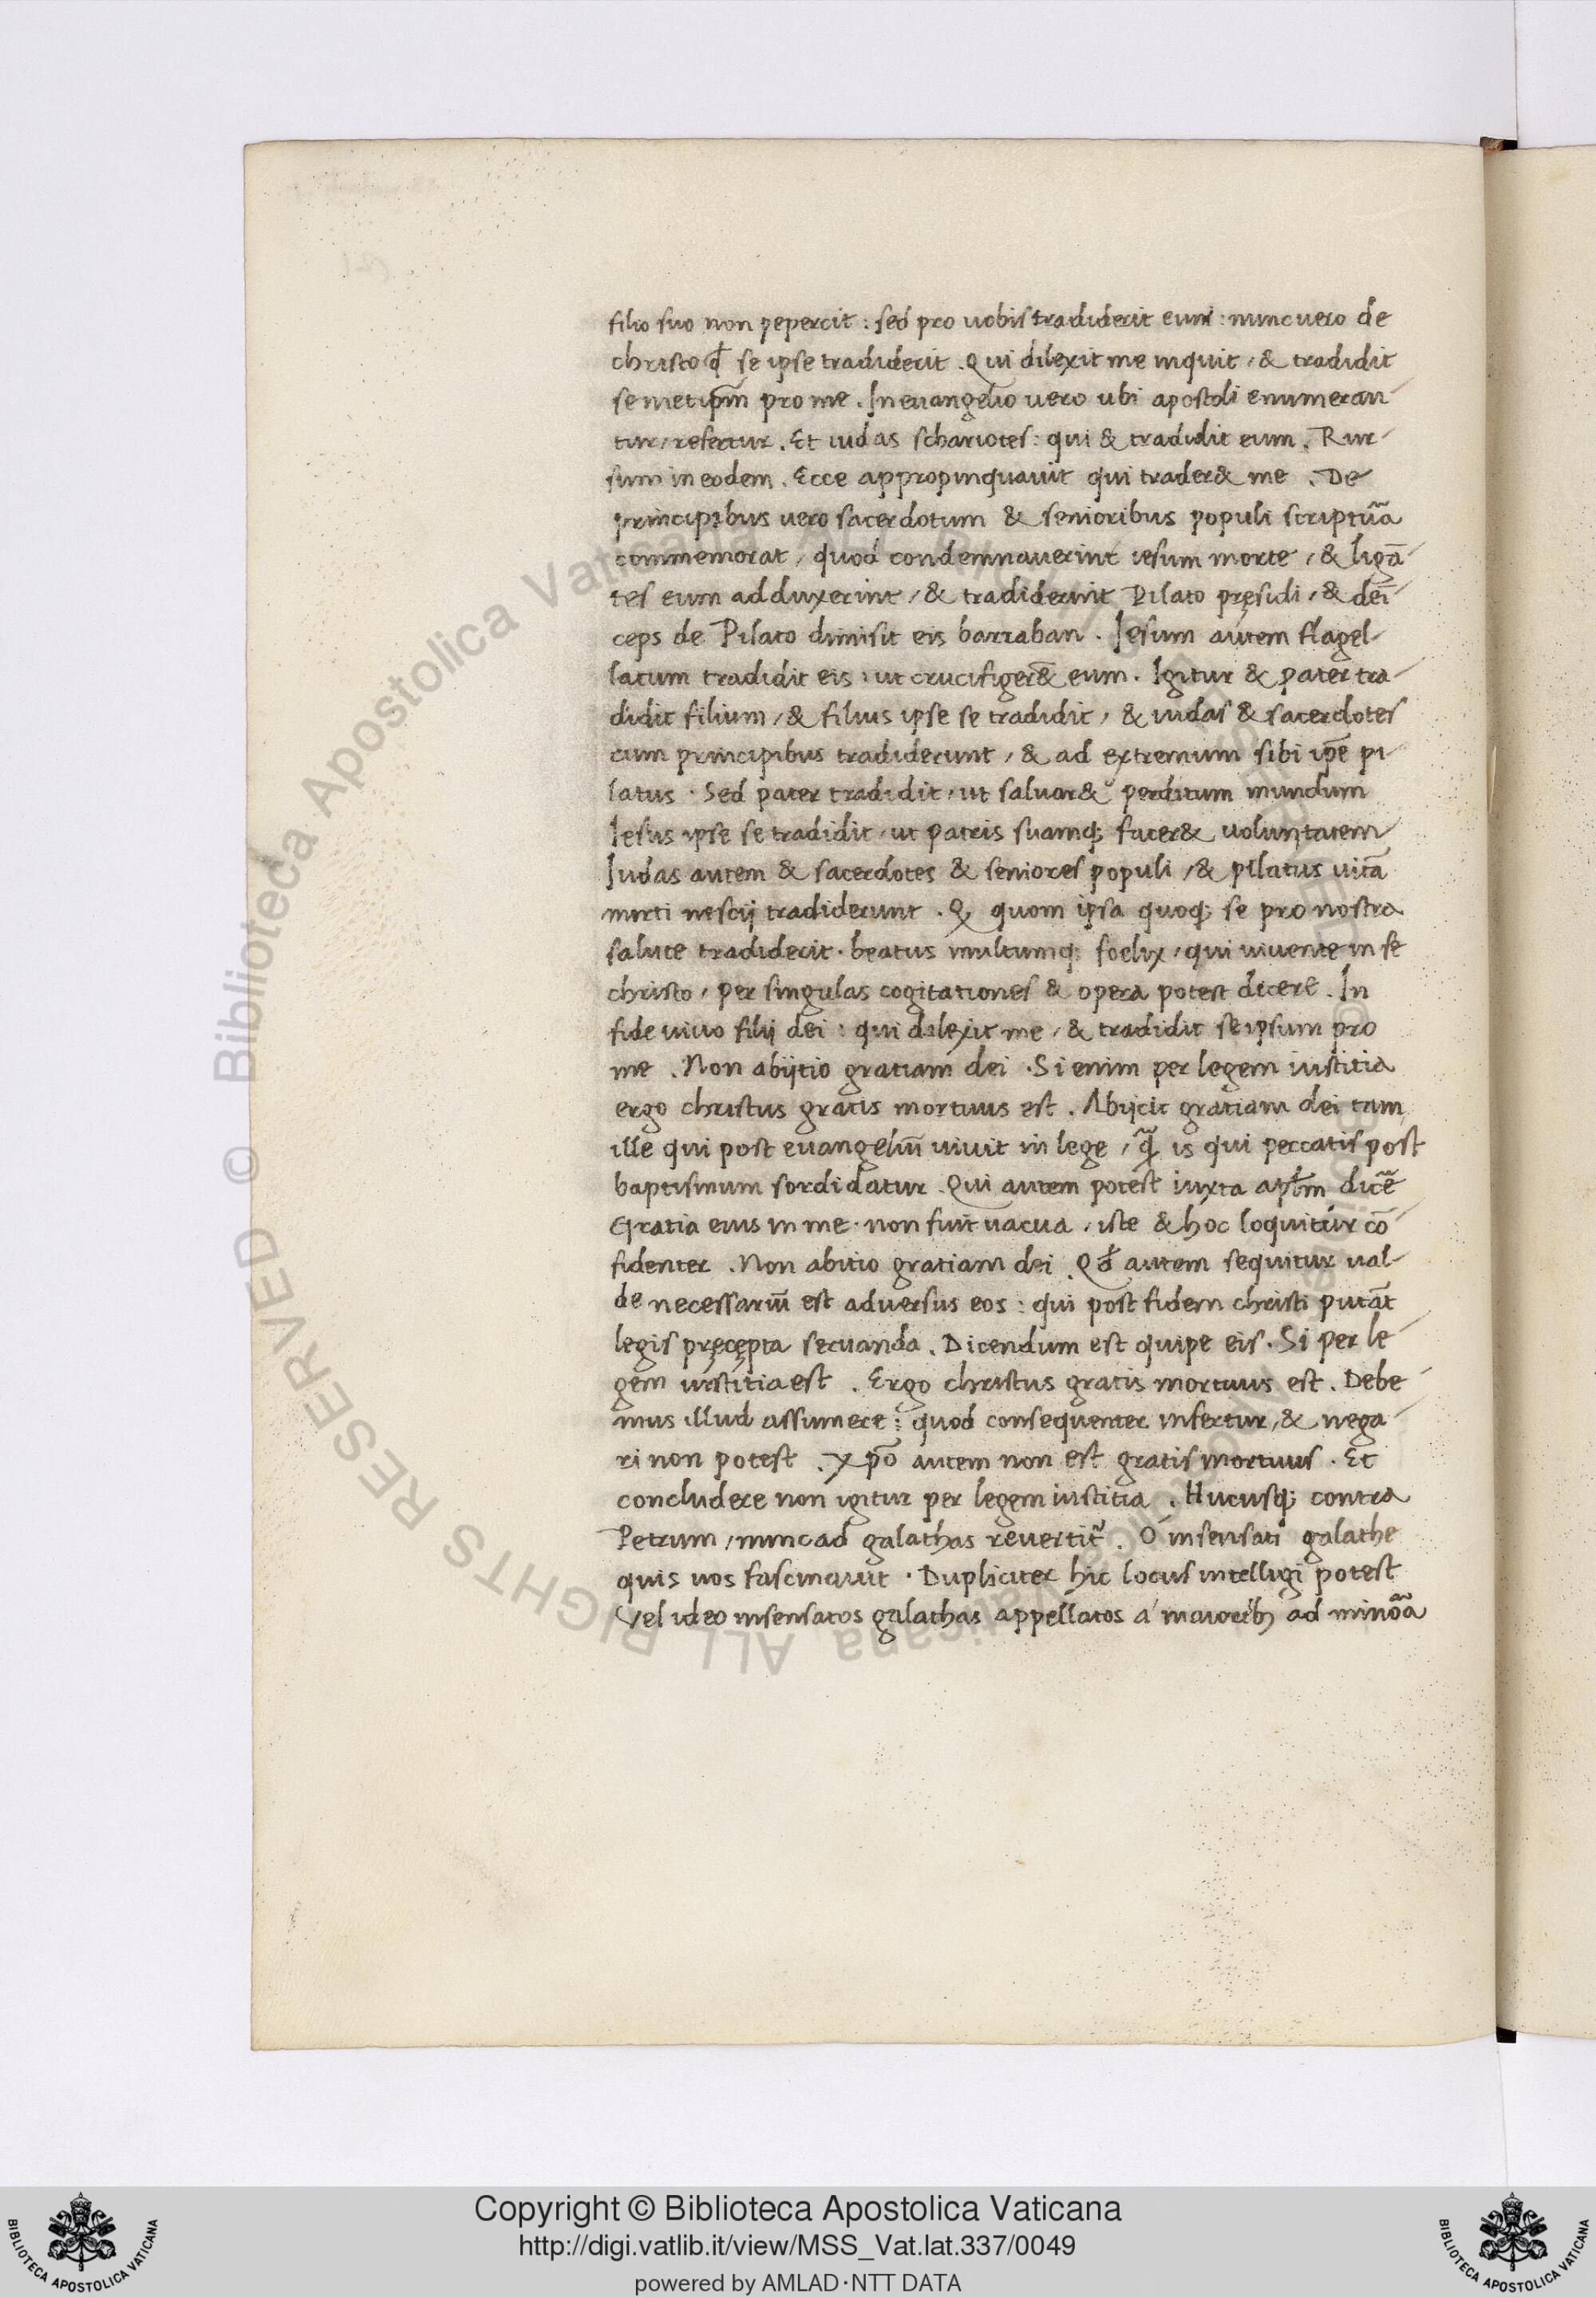 filio suo non pepercit : sed pro uobis tradiderit eum : nunc uero de
christo ꝙ se ipse tradiderit . Qui dilexit me inquit / & tradidit
semetip̄m pro me . In euangelio uero ubi apostoli enumeran-
tur / refertur . Et iudas schariotes : qui & tradidit eum . Rur-
sum in eodem . Ecce appropinquauit qui trader& me . De
principibus uero sacerdotum & senioribus populi scriptũa
commemorat / quod condemnauerint iesum morte / & ligā-
tes eum adduxerint / & tradiderint Pilato pręsidi / & deī-
ceps de Pilato dimisit eis barraban . Iesum autem flagel-
latum tradidit eis : ut crucifiger&̄ eum . Igitur & pater tra-
didit filium / & filius ipse se tradidit / & iudas & sacerdotes
cum principibus tradiderunt / & ad extremum sibi ip̄e pi-
latus . Sed pater tradidit / ut saluar& perditum mundum
Iesus ipse se tradidit / ut patris suamq; facer& uoluntatem
Iudas autem & sacerdotes & seniores populi / & pilatus uitā
morti nescij tradiderunt . Q quom ipsa quoq; se pro nostra
salute tradiderit . beatus multumq; foelix / qui uiuente in se
christo / per singulas cogitationes & opera potest dicere . In
fide uiuo filij dei : qui dilexit me / & tradidit seipsum pro
me . Non abijtio gratiam dei . Si enim per legem iustitia
ergo christus gratis mortuus est . Abijcit gratiam dei tam
ille qui post euangeliū uiuit in lege / q̃ is qui peccatis post
baptismum sordidatur . Qui autem potest iuxta apl̄m dicẽ
Gratia eius in me . non fuit uacua / iste & hoc loquitur cō-
fidenter . Non abitio gratiam dei . Qđ autem sequitur ual-
de necessariū est aduersus eos : qui post fidem christi putāt
legis pręcępta seruanda . Dicendum est quipe eis . Si per le-
gem iustitia est . Ergo christus gratis mortuus est . Debe-
mus illud assumere : quod consequenter infertur / & nega-
ri non potest . Xp̄o autem non est gratis mortuus . Et
concludere non igitur per legem iustitia . Hucusq; contra
Petrum / nunc ad galathas reuertit᷑ . O insensati galathe
quis uos fascinauit . Dupliciter hic locus intelligi potest
Vel ideo insensatos galathas appellatos a' maiorib; ad minõa
Copyright © Biblioteca Apostolica Vaticana
http://digi.vatlib.it/view/MSS_Vat.lat.337/0049
powered by AMLAD·NTT DATA